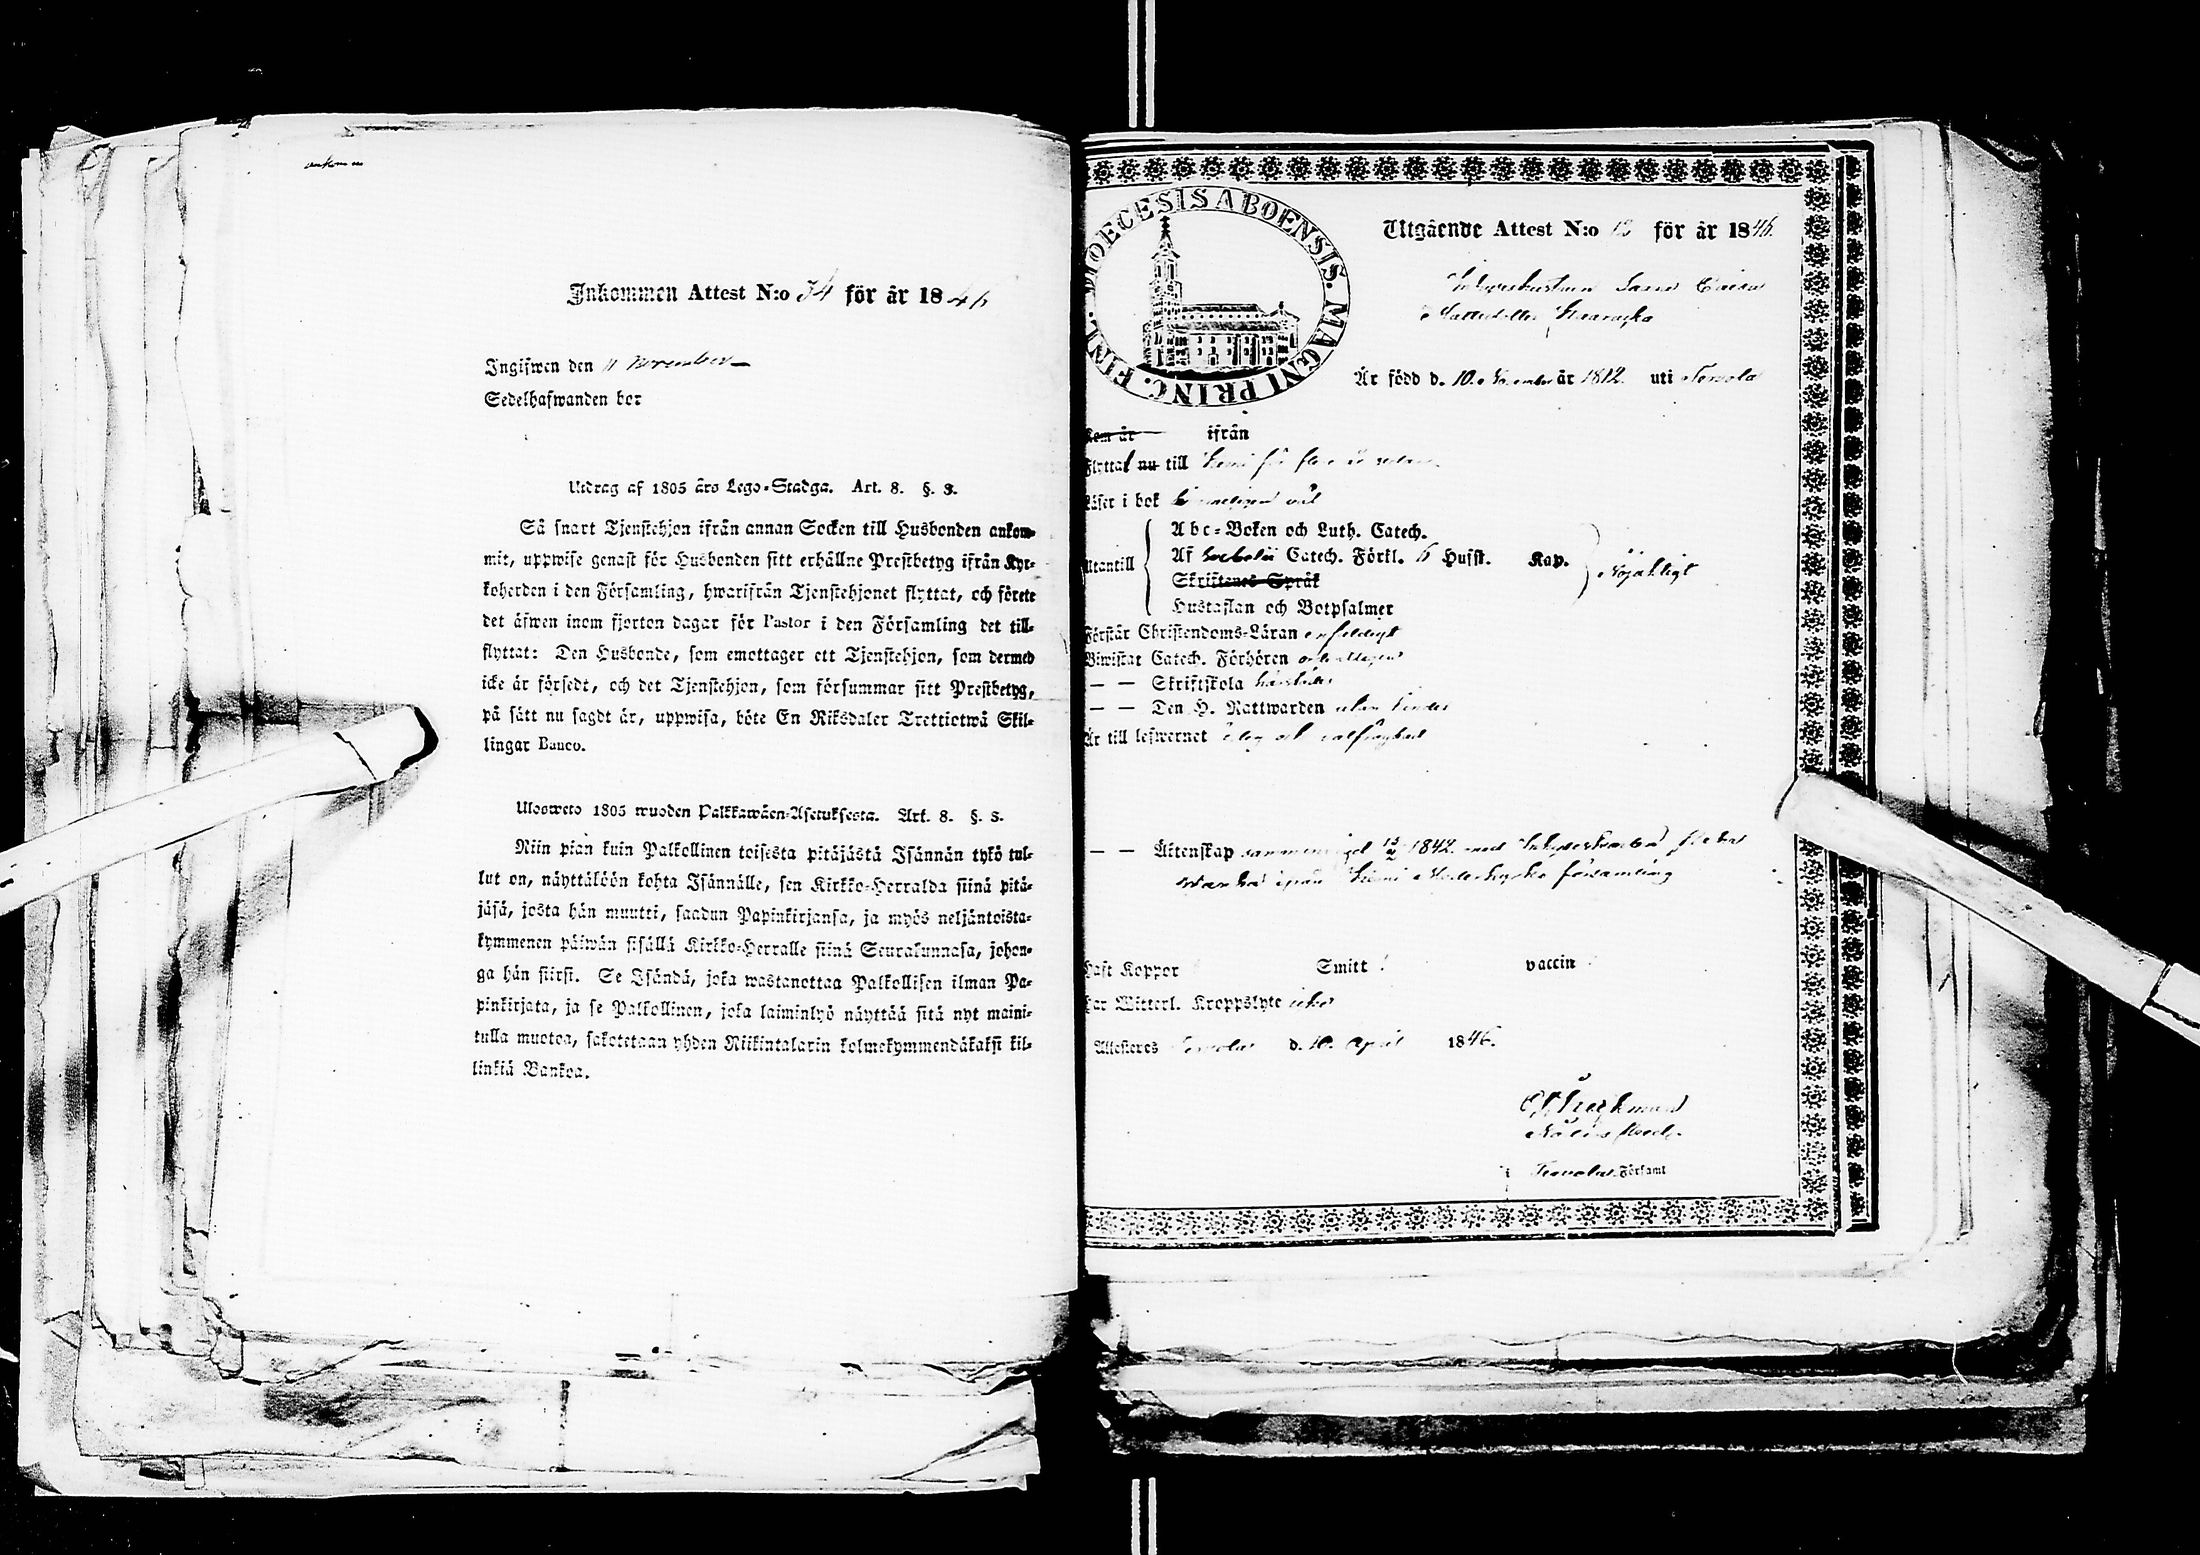 ankom m
Inkommen Attest N:o 34 för år 1846
Ingifwen den 11 November
Sedelhafwanden bor
Utdrag af 1805 års Lego-Stadga. Art. 8. §. 3.
Så snart Tjenstehjon ifrån annan Socken till Husbonden ankom-
mit, uppwise genast för Husbonden sitt erhållne Prestbetyg ifrån Kyr-
koherden i den Församling, hwarifrån Tjenstehjonet flyttat, och förete
det äfwen inom fjorton dagar för Pastor i den Församling det till-
flyttat: Den Husbonde, som emottager ett Tjenstehjon, som dermed
icke är försedt, och det Tjenstehjon, som försummar sitt Prestbetyg,
på sätt nu sagdt är, uppwisa, böte En Riksdaler Trettiotwå Skil-
lingar Banco.
Ulosweto 1805 wuoden Palkkawäen-Asetuksesta. Art. 8. §. 3.
Niin pian kuin Palkollinen toisesta pitäjästä Isännän tykö tul-
lut on, näyttälöön kohta Isännälle, sen Kirkko-Herralda siinä pitä-
jäsä, josta hän muutti, saadun Papinkirjansa, ja myös neljäntoista-
kymmenen päiwän sisällä Kirkko-Herralle siinä Seurakunnasa, johon-
ga hän siirsi. Se Isändä, joka wastanottaa Palkollisen ilman Pa-
pinkirjata, ja se Palkollinen, joka laiminlyö näyttää sitä nyt maini-
tulla muotoa, sakotetaan yhden Riikintalarin kolmekymmendäkaksi kil-
linkiä Bankoa.
DIOECESIS ABOENSIS. MAGNI PRINC. FINL.
Utgående Attest N:o 13 för år 1846.
Caisa
Är född d. 10. November år 1812. uti Tervola
Kom år ifrån
Flyttat nu till Kemi för flere år sedan
Läser i bok
Utantill
Abc-Boken och Luth. Catech.
Af Catech. Förkl. 6 Hufst. Kap.
Skriftenes Språk
Nöjaktigt
Hustaflan och Botpsalmer
Förstår Christendoms-Läran enfeldigt
Biwistat Catech. Förhören
— — Skriftskola
— — Den H. Nattwarden utan hinder
Är till lefwernet ärlig och
— — Äktenskap 1842. med
ifrån Kemi Moderkyrko församling
Haft Koppor Smitt vaccin
Har Witterl. Kroppslyte icke
Attesteras Tervola d. 10. April 1846.
Tervola Församl